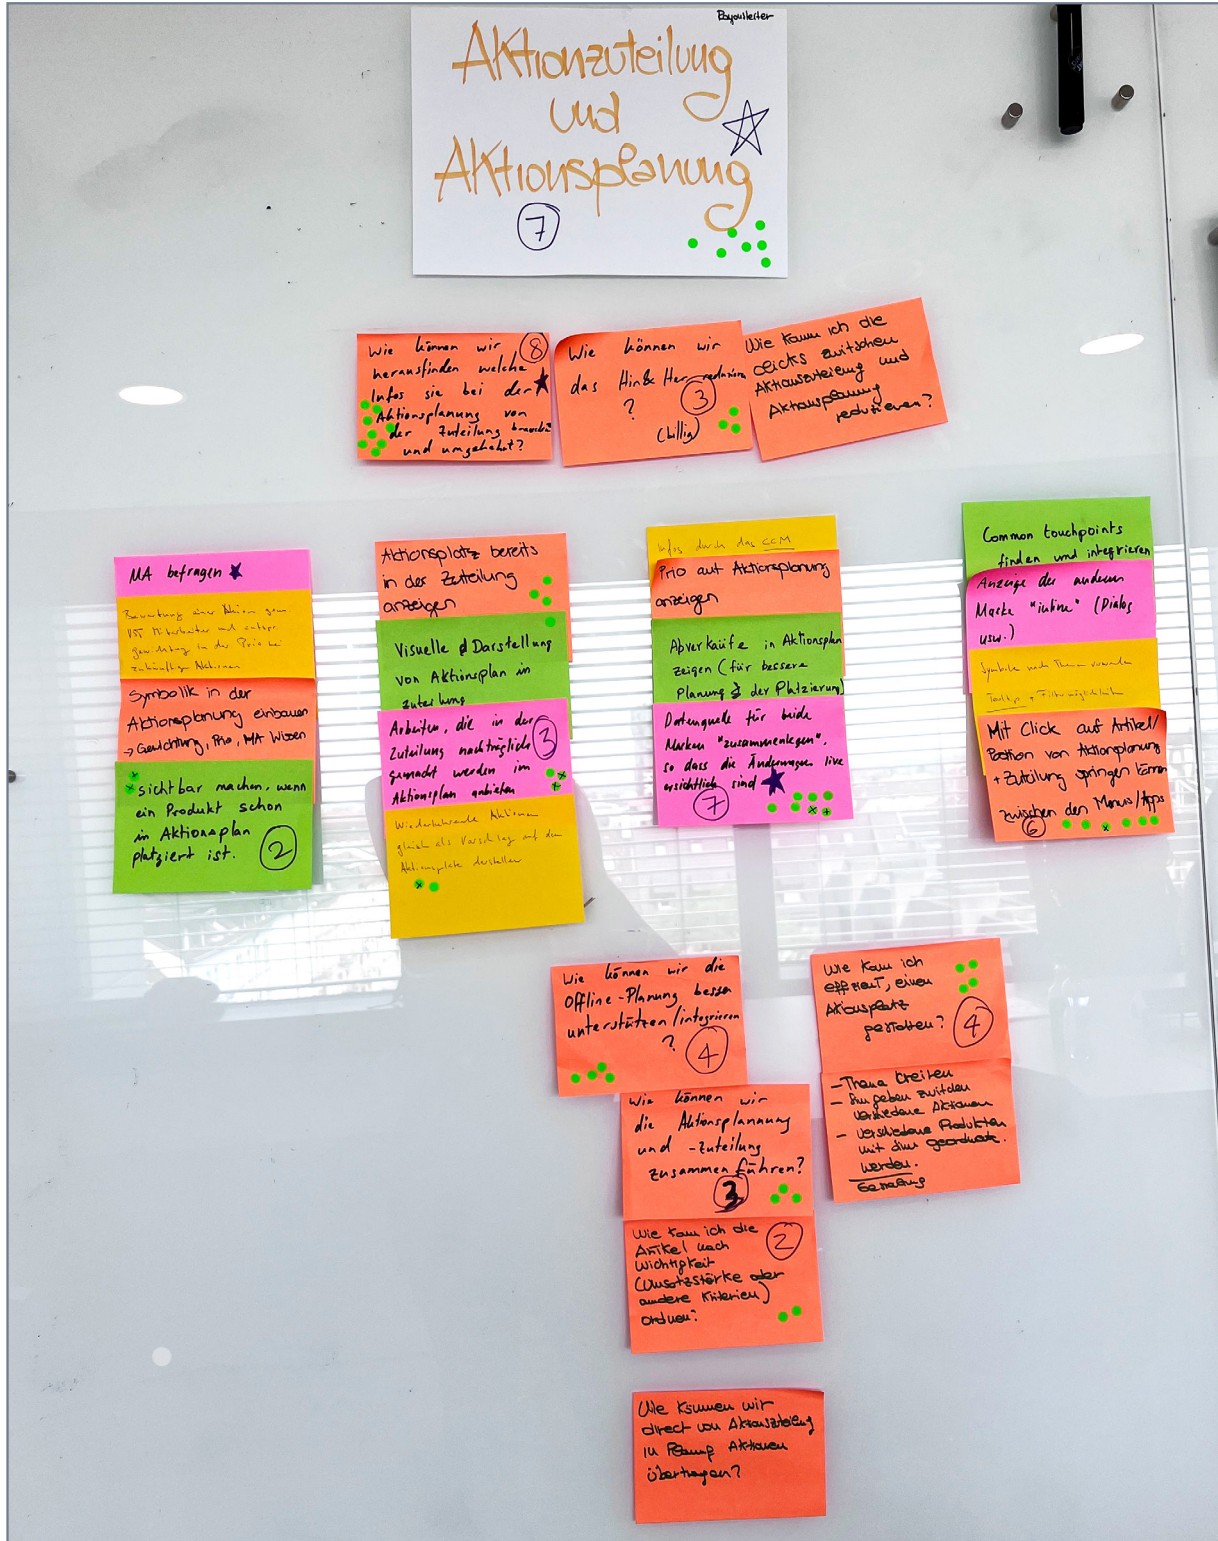 Rayonleiter
Aktionzuteilung
und
Aktionsplanung
7
Wie können wir
8
herausfinden welche
Infos sie bei der
Aktionsplanung von
der Zuteilung
und umgekehrt?
Wie können wir
das Hin & Her reduzieren
?
3
(billig)
Wie kann ich die
clicks zwitschen
Aktionszuteilung und
Aktionsplanung
reduzieren?
MA befragen
einer Aktion
VST Mitarbeiter und
in der Prio
Aktionen
Symbolik in der
Aktionsplanung einbauen
→ Gewichtung, Prio, MA Wissen
sichtbar machen, wenn
ein Produkt schon
in Aktionsplan
platziert ist.
2
Aktionsplatz bereits
in der Zuteilung
anzeigen
Visuelle Darstellung
von Aktionsplan in
Zuteilung
Arbeiten, die in der
Zuteilung nachträglich
3
gemacht werden im
Aktionsplan anbieten
Wiederkehrende Aktionen
gleich als Vorschlag auf dem
Aktionsplatz darstellen
Infos durch das CCM
Prio auf Aktionsplanung
anzeigen
Abverkäufe in Aktionsplan
zeigen (für bessere
Planung & der Platzierung)
Datenquelle für beide
Masken "zusammenlegen",
so dass die Änderungen live
ersichtlich sind
7
Common touchpoints
finden und integrieren
Anzeige der anderen
Maske "inline" (Dialog
usw.)
Symbole nach Thema verwenden
Tooltips + Filtermöglichkeiten
Mit Click auf Artikel/
Position von Aktionplanung
+ Zuteilung springen können
zwischen den Menus/Apps
6
Wie können wir die
Offline-Planung besser
unterstützen/integrieren
?
4
Wie kann ich
effizient, einen
Aktionsplatz
gestalten?
4
- Thema kreiren
- Sinn geben zwitchen
verschiedene Aktionen
- verschiedene Produkten
mit sinn geordnete.
werden.
Gestaltung
Wie können wir
die Aktionsplannung
und -Zuteilung
zusammen führen?
3
Wie kann ich die
2
Artikel nach
Wichtigkeit
(Umsatzstärke oder
andere Kriterien)
Ordnen?
Wie können wir
direct von Aktionszuteilung
in Planung Aktionen
übertragen?